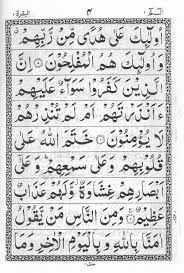 البقرة ٢
٣
الٓمّٓ ١
اُولٰٓئِكَ عَلٰى هُدًى مِّنْ رَّبِّهِمْ ۗ
وَاُولٰٓئِكَ هُمُ الْمُفْلِحُوْنَ ۝ اِنَّ
الَّذِيْنَ كَفَرُوْا سَوَآءٌ عَلَيْهِمْ
ءَاَنْذَرْتَهُمْ اَمْ لَمْ تُنْذِرْهُمْ
لَا يُؤْمِنُوْنَ ۝ خَتَمَ اللّٰهُ عَلٰى
قُلُوْبِهِمْ وَعَلٰى سَمْعِهِمْ ۗ وَعَلٰٓى
اَبْصَارِهِمْ غِشَاوَةٌ وَّلَهُمْ عَذَابٌ
عَظِيْمٌ ۝ وَمِنَ النَّاسِ مَنْ يَّقُوْلُ
اٰمَنَّا بِاللّٰهِ وَبِالْيَوْمِ الْاٰخِرِ وَمَا